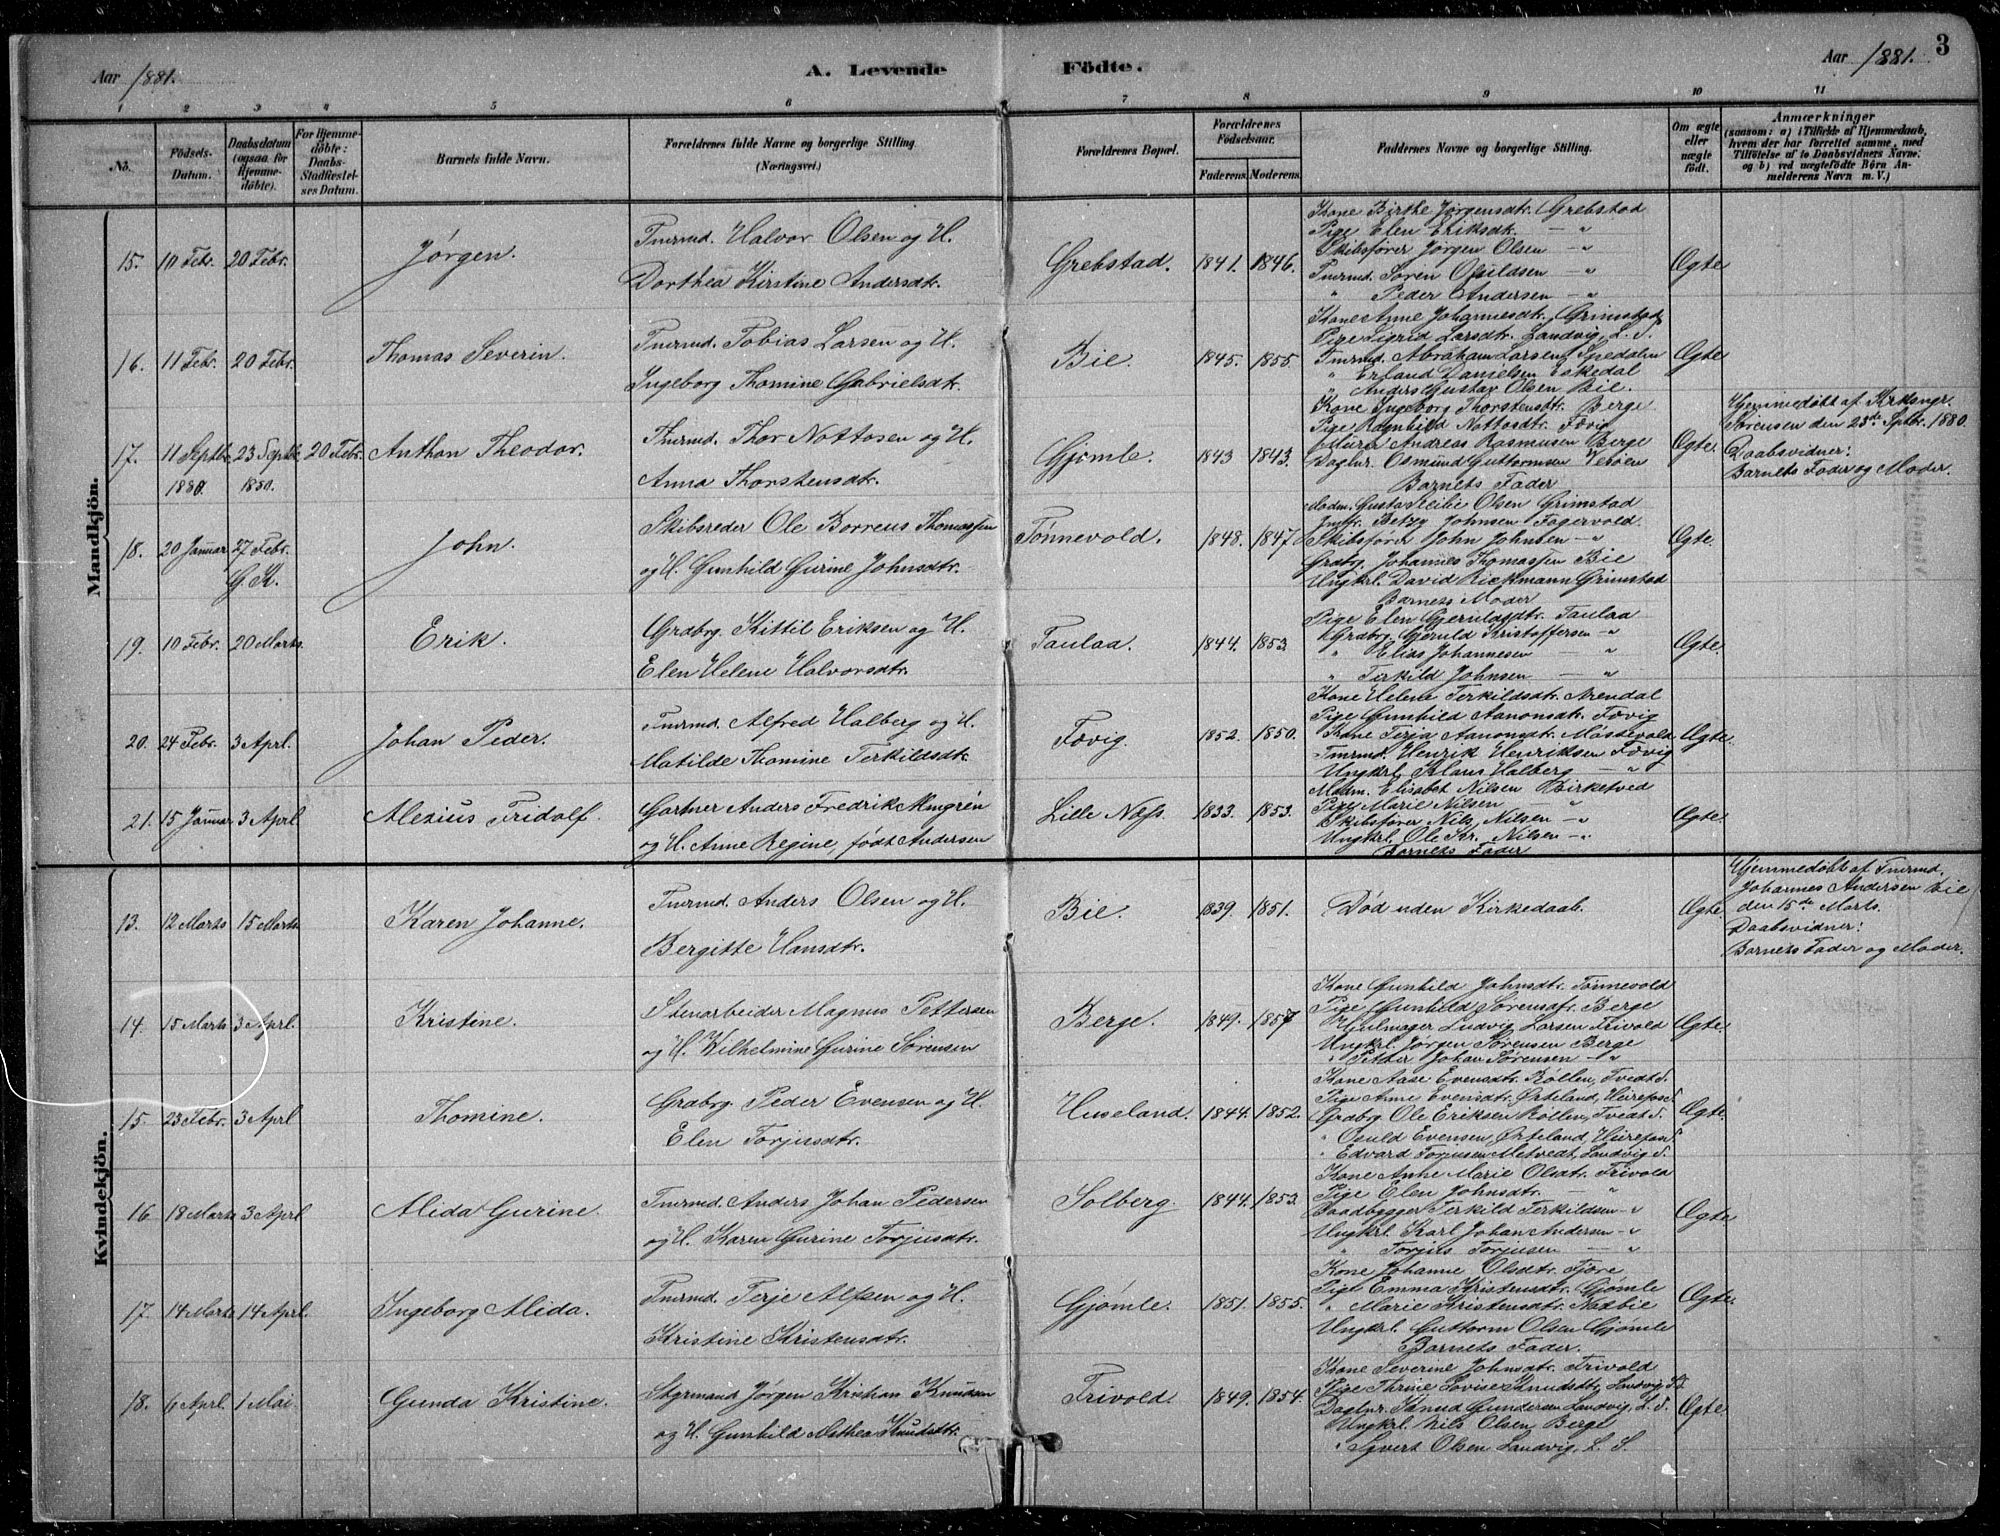 Aar 1881.
A. Levende Födte.
Aar 1881.
3
1 2 3 4 5 6 7 8 9 10 11
No.
Födsels-Datum.
Daabsdatum (ogsaa for Hjemmedöbte).
For Hjemmedöbte: Daabs-Stadfæstelses Datum.
Barnets fulde Navn.
Forældrenes fulde Navne og borgerlige Stilling (Næringsvei.)
Forældrenes Bopæl.
Forældrenes Födselsaar.
Faderens. Moderens.
Faddernes Navne og borgerlige Stilling.
Om ægte eller uægte födt.
Anmærkninger
(saasom: a) i Tilfælde af Hjemmedaab, hvem der har forrettet samme, med Tilföielse af to Daabsvidners Navne; og b) ved uægtefödte Börn Anmelderens Navn m. V.)
Mandkjön.
15. 10 Febr. 20 Febr. Jørgen.
Tmrmd. Halvor Olsen og H.
Dorthea Kirstine Andersdtr.
Grebstad. 1841. 1846.
Kone Birthe Jørgensdtr. Grebstad
Pige Elen Eriksdtr. — "
Skibsfører Jørgen Olsen — "
Tmrmd. Søren Osuldsen — "
" Peder Andersen — "
Ægte
16. 11 Febr. 20 Febr. Thomas Severin.
Tmrmd. Tobias Larsen og H.
Ingeborg Thomine Gabrielsdtr.
Bie. 1845. 1855.
Kone Anne Johannesdtr. Grimstad
Pige Sigrid Larsdtr. Landvig, L. S.
Tmrmd. Abraham Larsen, Spedalen
" Erland Danielsen Eskedal
" Anders Gustav Olsen, Bie.
Ægte
17. 11 Septbr. 1880. 23 Septbr. 1880. 20 Febr. Anthon Theodor.
Tmrmd. Thor Nottosen og H.
Anna Thorstensdtr.
Gjømle. 1843 1843.
Kone Ingeborg Thorstensdtr. Berge
Pige Ragnhild Nottosdtr. Fævig
Andreas Rasmusen Berge
Daglnr. Osmund Guttormsen Vesøen
Barnets Fader
Ægte.
Hjemmedøbt af Kirkesngr.
Sørensen den 23de Septbr. 1880.
Daabsvidner:
Barnets Fader og Moder.
18. 20 Januar 27 Febr. G. K. John.
Skibsreder Ole Borreus Thomassen
og H. Gunhild Gurine Johnsdtr.
Tønnevold. 1848. 1847.
Madm. Gusta Cecilie Olsen Grimstad
Jmfr. Betzy Johnsen Fagervold.
Skibsfører John Johnsen — "
Grdbrg. Johannes Thomassen Bie
Ungkrl. David Rickmann Grimstad
Barnets Moder
Ægte.
19. 10 Febr. 20 Marts. Erik.
Grdbrg. Kittil Eriksen og H.
Elen Helene Halvorsdtr.
Taulaa. 1844. 1853.
Pige Elen Gjeruldsdtr. Taulaa
Grdbrg. Gjeruld Kristoffersen "
" Elias Johannesen — "
" Terkild Johnsen — "
Ægte.
20. 24 Febr. 3 Aprl. Johan Peder.
Tmrmd. Alfred Halberg og H.
Matilde Thomine Terkildsdtr.
Fævig. 1852. 1850.
Kone Helene Terkildsdtr. Arendal
Pige Gunhild Aanonsdtr. Fævig
Kone Terja Aanonsdtr. Mossevold
Tmrmd. Henrik Henriksen Fævig
Ungkrl. Klaus Halberg "
Ægte.
21. 15 Januar 3 Aprl. Alexius Fridolf.
Gartner Anders Fredrik Almgrén
og H. Anne Regine, født Andersen
Lille Næs. 1833. 1853.
Madm. Elisabet Nilsen Birketved
Pige Marie Nilsen — "
Skibsfører Nils Nilsen — "
Ungkrl. Ole Kr. Nilsen — "
Barnets Fader
Ægte.
Kvindekjön.
13. 12 Marts 15 Marts. Karen Johanne.
Tmrmd. Anders Olsen og H.
Bergitte Hansdtr.
Bie. 1839. 1851.
Død uden Kirkedaab.
Ægte
Hjemmedøbt af Tmrmd.
Johannes Andersen Bie
den 15de Marts.
Daabsvidner:
Barnets Fader og Moder.
14. 15 Marts 3 Aprl. Kristine.
Stenarbeider Magnus Pettersen
og H. Wilhelmine Gurine Sørensen
Berge. 1849. 1857
Kone Gunhild Johnsdtr. Tønnevold
Pige Gunhild Sørensdtr. Berge
Hjulmager Ludvig Larsen Frivold
Ungkrl. Jørgen Sørensen Berge
" Petter Johan Sørensen — "
Ægte.
15. 23 Febr. 3 Aprl Thomine.
Grdbrg. Peder Evensen og H.
Elen Torjusdtr.
Huseland. 1844. 1852.
Kone Aase Evensdtr. Røllen, Tvedt S.
Pige Anne Evensdtr. Ørteland, Hirefos S.
Grdbrg. Ole Eriksen Røllen, Tvedt S.
" Osuld Evensen, Ørteland, Hirefos S.
" Edvard Torjusen Metvedt, Landvig S.
Ægte.
16. 18 Marts 3 Aprl Alida Gurine.
Tmrmd. Anders Johan Pedersen
og H. Karen Gurine Torjusdtr.
Solberg. 1844. 1853.
Kone Anne Marie Olsdtr. Frivold
Pige Elen Johnsdtr. — "
Baadbygger Terkild Terkildsen — "
Ungkrl. Karl Johan Andersen — "
" Torjus Torjusen — "
Ægte.
17. 14 Marts 14 Aprl. Ingeborg Alida.
Tmrmd. Terje Alfsen og H.
Kristine Kristensdtr.
Gjømle. 1851. 1855.
Kone Johanne Olsdtr. Fjære
Pige Emma Kristensdtr. Gjømle
" Marie Kristensdtr. Naxbie
Ungkrl. Guttorm Olsen Gjømle
Barnets Fader.
Ægte.
18. 6 Aprl. 1 Mai. Gunda Kristine.
Styrmand Jørgen Kristian Knudsen
og H. Gunhild Mathea Knudsdtr.
Frivold. 1849. 1854.
Kone Severine Johnsdtr. Frivold
Pige Thrine Lovise Knudsdtr. Landvig S.
Daglnr. Knud Gundersen Landvig, L. S.
Ungkrl. Nils Olsen Berge
" Syvert Olsen Landvig, L. S.
Ægte.